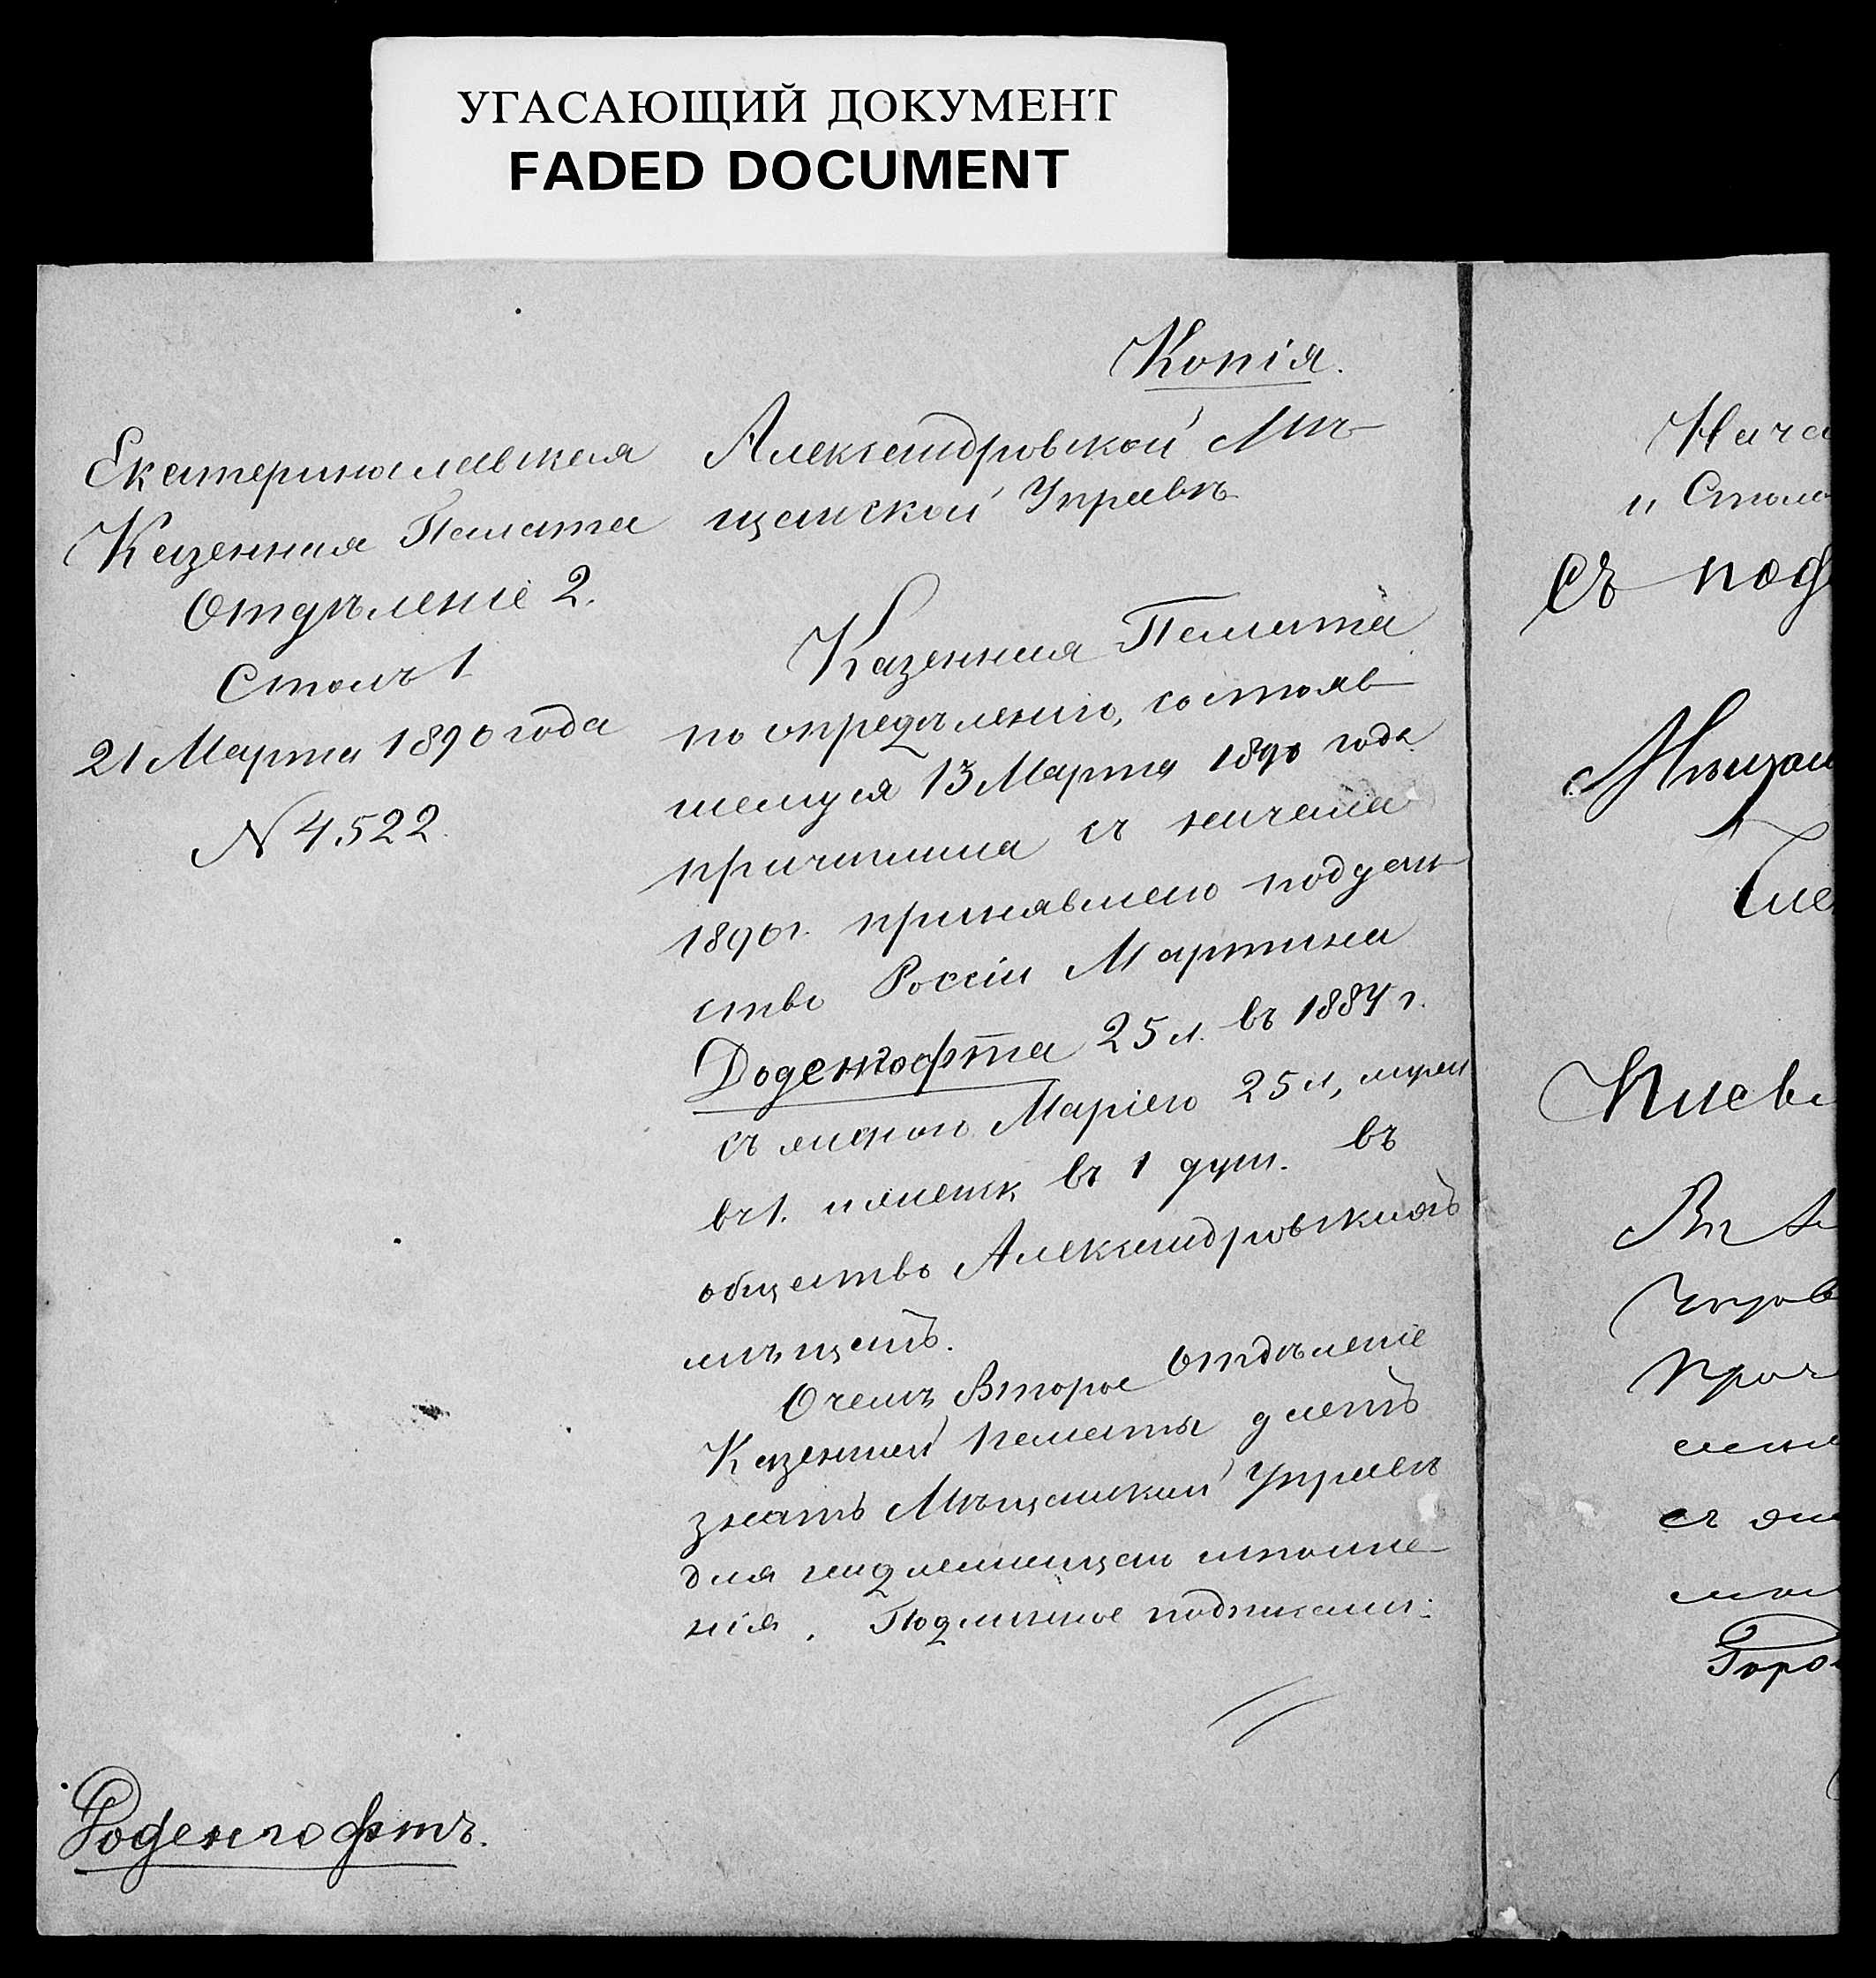 УГАСАЮЩИЙ ДОКУМЕНТ
FADED DOCUMENT
Копія.
Екатеринославская
Казенная Палата
Отдѣленіе 2.
Столъ 1
21 Марта 1890 года
N 4522.
Александровской Мѣ
щанской Управѣ
Казенная Палата
по опредѣленію, состояв
шемуся 13 Марта 1890 года
причислила съ начала
1890 г. принявшаго поддан
ство Россіи Мартина
Доденгофта 25 л. въ 1884 г.
съ женою Маріею 25 л,
въ 1. и женск въ 1 душ. въ
общество Александровскихъ
мѣщанъ.
О чемъ Второе Отдѣленіе
Казенной Палаты даетъ
знать Мѣщанской Управѣ
для надлежащаго исполне
нія. Подлинное подписали:
Роденгофтъ.
Нача
и Столо
съ под
Мѣщан
Кіевс
Управ
Горо